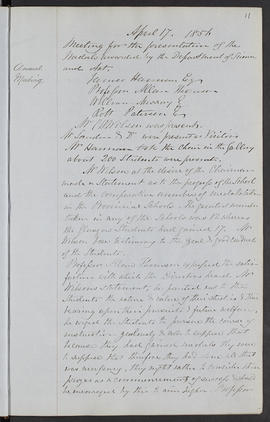 11
April 17. 1856
Annual
Meeting
Meeting for the presentation of the
Medals awarded by the Department of Science
and Art,
James Hannan Esq
Professor Allen Thomson
William Murray E
Robt Paterson Esq
Mr C H Wilson was present.
Mr Hannan took the chair in the Gallery
about 200 Students were present.
Mr Wilson at the desire of the Chairman
made a Statement as to the progress of the School
and the comparative number of medals taken
in the Provincial Schools. The greatest number
taken in any of the Schools was
the Glasgow Students had gained 17. Mr
Wilson bore testimony to the good conduct
of the Students.
Professor Allen Thomson expressed the satis-
faction with which the Directors heard Mr
Wilson's statements, he pointed out to the
Students the nature & value of their studies & their
bearing upon their pursuits & future welfare,
he urged the Students to pursue the course of
instruction zealously & not to suppose that
because they had gained medals they were
to suppose that therefore they had done all that
was necessary, they ought rather to consider their
prizes as a commencement of success & should
be encouraged by this to aim higher. Professor